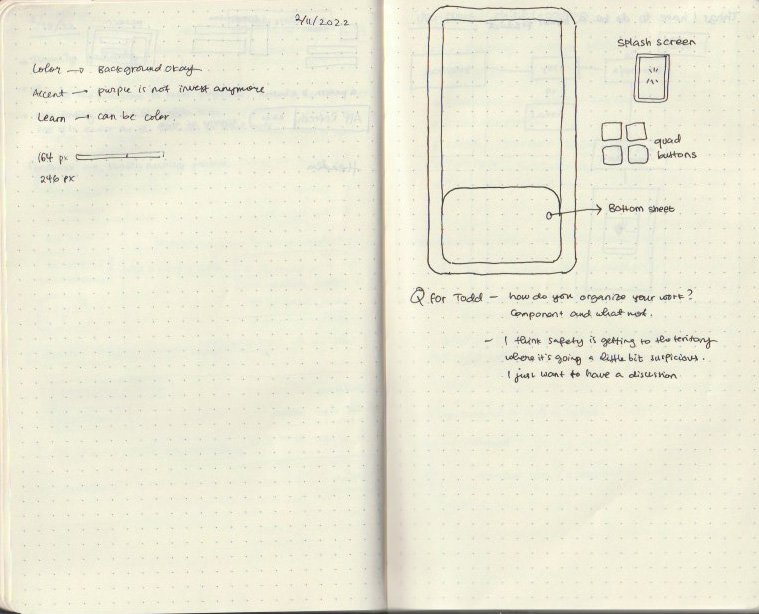 2/11/2022
Color → Background okay.
Accent → purple is not invest anymore
Learn → can be color.
164 px
246 px
Splash screen
quad
buttons
Bottom sheet
Q for Todd - how do you organize your work?
Component and what not.
- I think safety is getting to the teritory
where it's going a little bit suspicious.
I just want to have a discussion